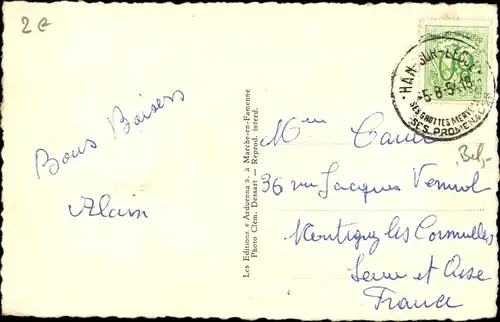 2 €
HAN-SUR-LESSE
5-8-5 -18
SES GROTTES MERVEIL
SES PROMENADES
Bel,-
Bons Baisers
Alain
Les Editions « Arduenna », à Marche-en-Famenne
Photo Clém. Dessart — Reprod. interd.
Mme
36 rue Jacques Vermol
Montigny les Cormeilles
Seine et Oise
France